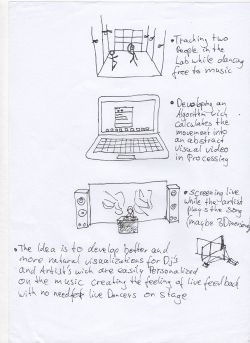 • Tracking two
People in the
Lab while dancing
free to music
• Developing an
Algorithm wich
calculates the
movement into
an abstract
visual video
in Processing
• screening live
while the artist
plays the song
(maybe 3Dimensi
• The Idea is to develop better and
more natural visualizations for Dj's
and Artist's wich are easily Personalized
on the music creating the feeling of live feedback
with no need for live Dancers on stage